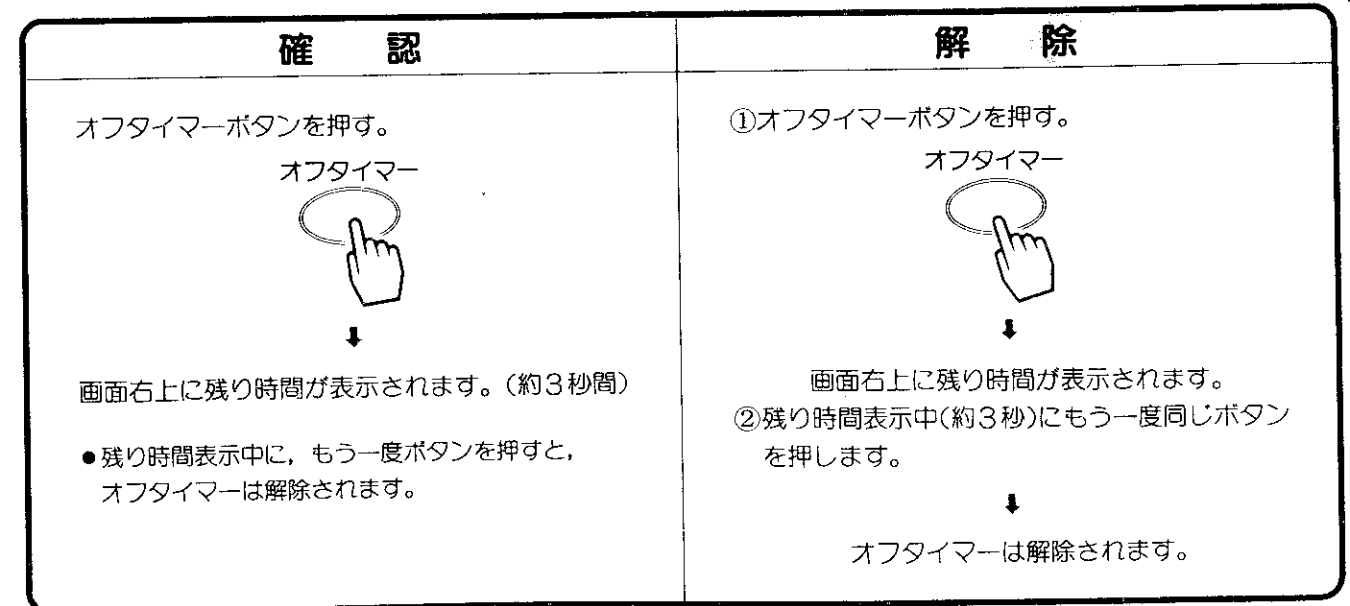 確 認
オフタイマーボタンを押す。
オフタイマー
画面右上に残り時間が表示されます。(約3秒間)
●残り時間表示中に，もう一度ボタンを押すと，
オフタイマーは解除されます。
解 除
①オフタイマーボタンを押す。
オフタイマー
画面右上に残り時間が表示されます。
②残り時間表示中(約3秒)にもう一度同じボタン
を押します。
オフタイマーは解除されます。